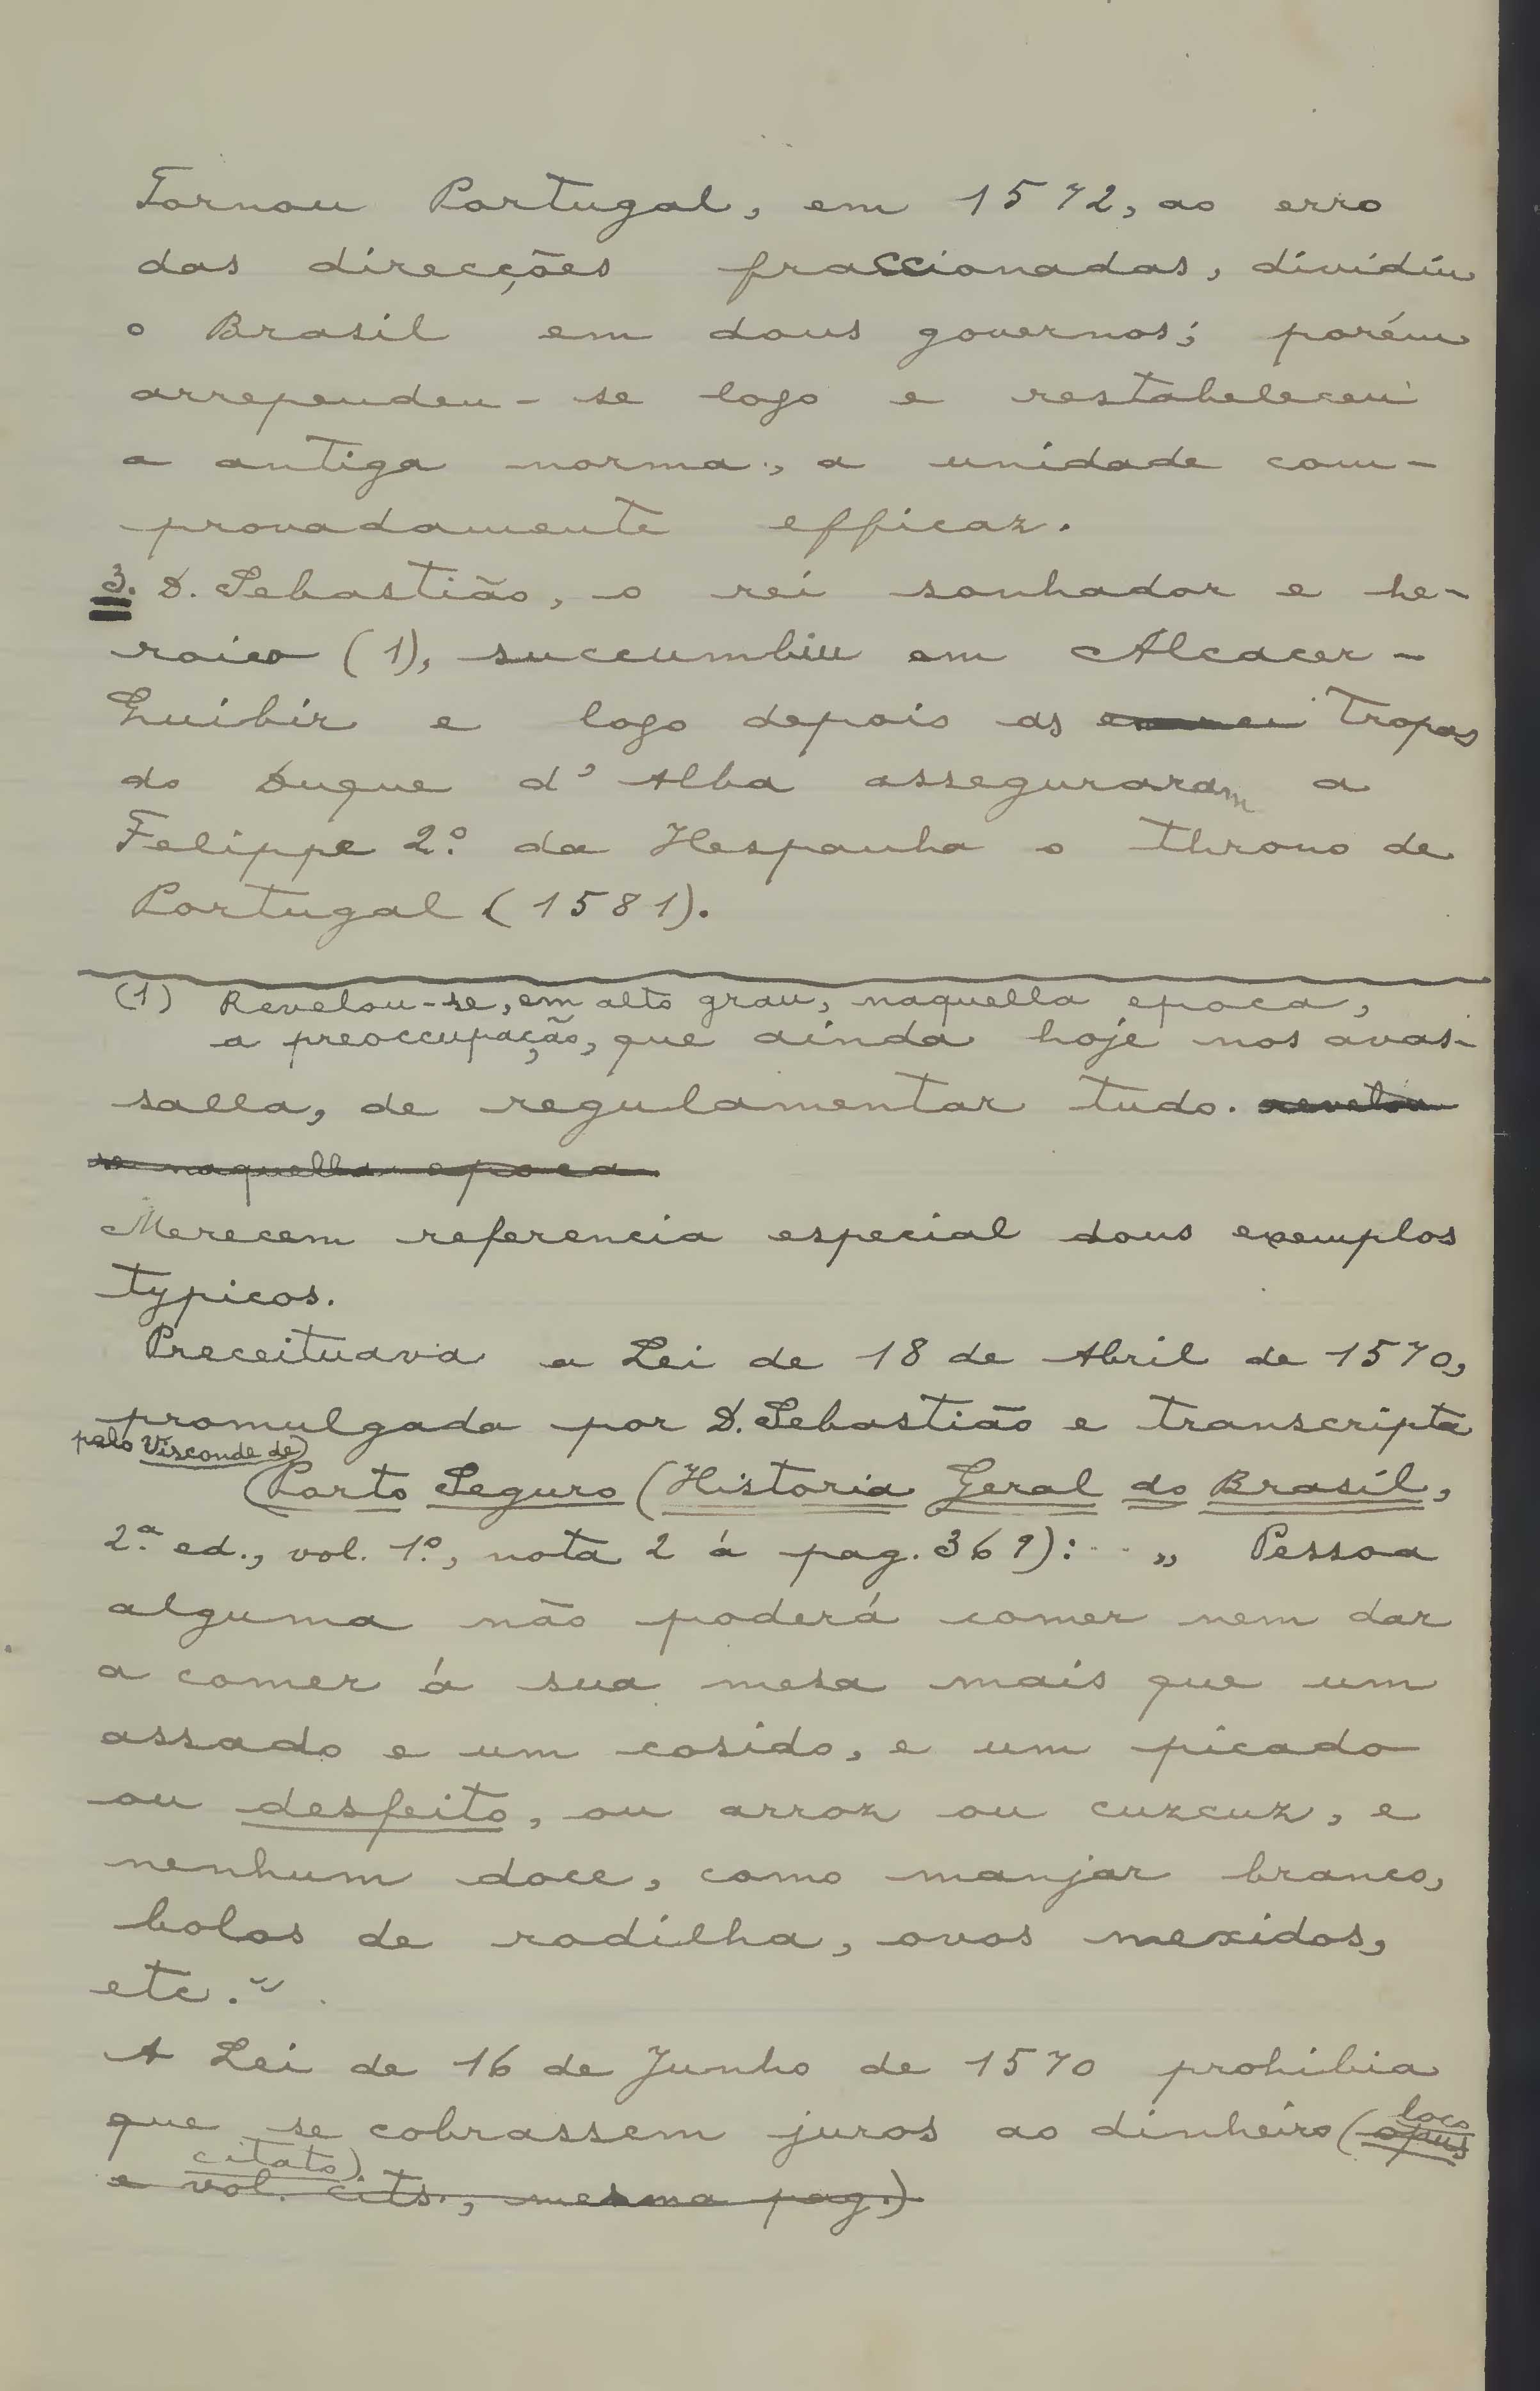 Tornou Portugal, em 1572, ao erro
das direcções fraccionadas, dividiu
o Brasil em dous governos; porém
arrependeu-se logo e restabeleceu
a antiga norma, a unidade com-
provadamente efficaz.
3. D. Sebastião, o rei sonhador e he-
roico (1), succumbiu em Alcacer-
Quibir e logo depois as tropas
do Duque d'Alba asseguraram a
Felippe 2º. da Hespanha o throno de
Portugal (1581).
(1) Revelou-se, em alto grau, naquella epoca,
a preoccupação, que ainda hoje nos avas-
salla, de regulamentar tudo. revelou
se naquella epoca
Merecem referencia especial dous exemplos
typicos.
Preceituava a Lei de 18 de Abril de 1570,
promulgada por D. Sebastião e transcripta
pelo Visconde de
(Porto Seguro (Historia Geral do Brasil,
2ª. ed., vol. 1º., nota 2 á pag. 369): „ Pessoa
alguma não poderá comer nem dar
a comer á sua mesa mais que um
assado e um cosido, e um picado
ou desfeito, ou arroz ou cuzcuz, e
nenhum doce, como manjar branco,
bolos de rodilha, ovos mexidos,
etc.”
A Lei de 16 de Junho de 1570 prohibia
loco
que se cobrassem juros ao dinheiro (opus
citato)
e vol. cits., mesma pag.)